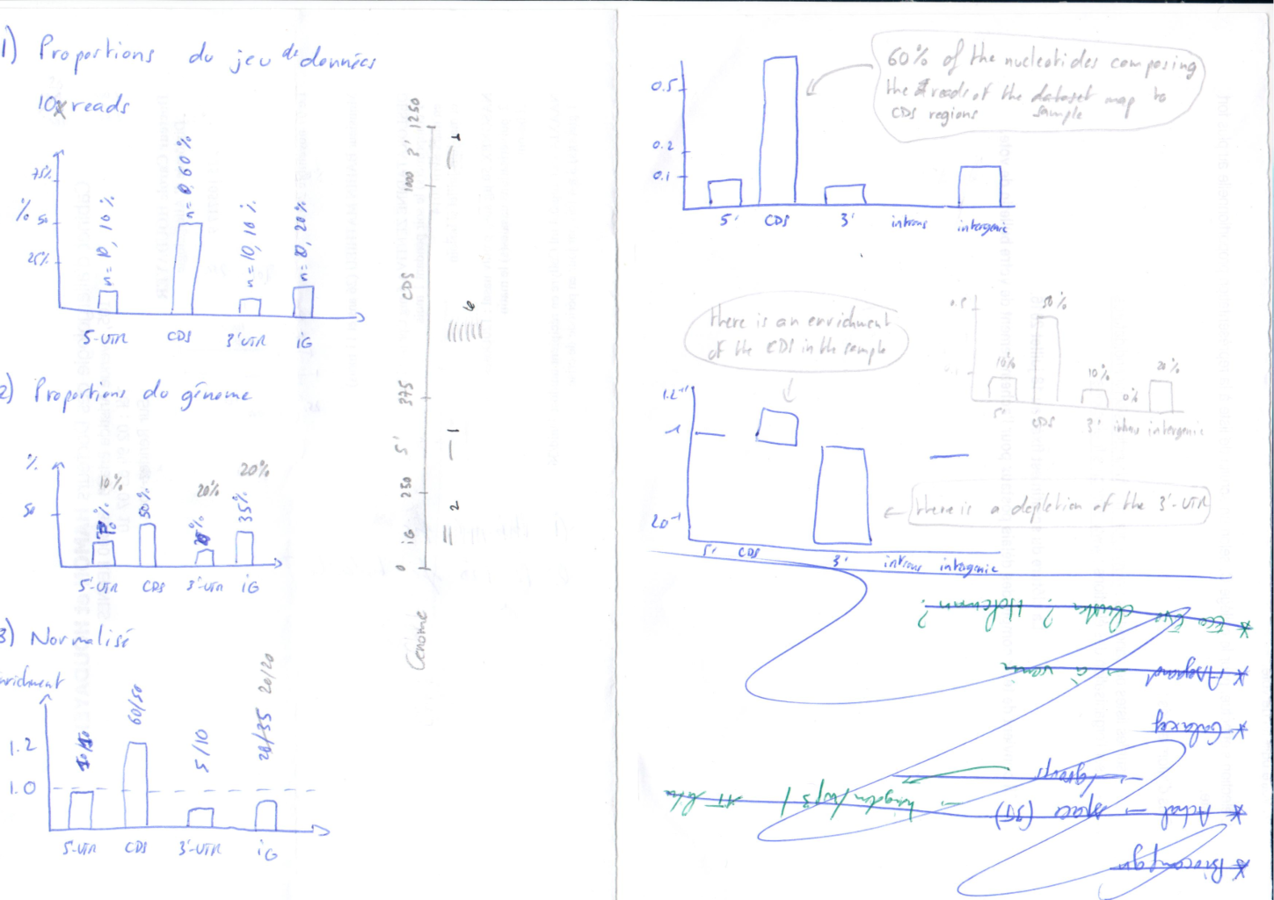 1) Proportions du jeu de données
10 reads
75%
% 50
25%
n=10, 10%
n=6, 60%
n=10, 10%
n= 20%
5'-UTR CDS 3'UTR iG
2) Proportions du génome
%
50
10%
50%
20%
20%
35%
5'-UTR CDS 3'-UTR iG
3) Normalisé
enrichment
1.2
1.0
60/50
5/10
20/35 20/20
5'-UTR CDS 3'-UTR iG
Génome
0 iG 250 5' 375 CDS 1000 3' 1250
2 1 6 1
0.5
0.2
0.1
5' CDS 3' introns intergenic
60% of the nucleotides composing
the reads of the dataset map to
CDS regions sample
0.5
10% 50% 10% 0% 20%
5' CDS 3' introns intergenic
there is an enrichment
of the CDS in the sample
1.2
1
20
5' CDS 3' introns intergenic
there is a depletion of the 3'-UTR
* Asgard → à venir
* Galaxy